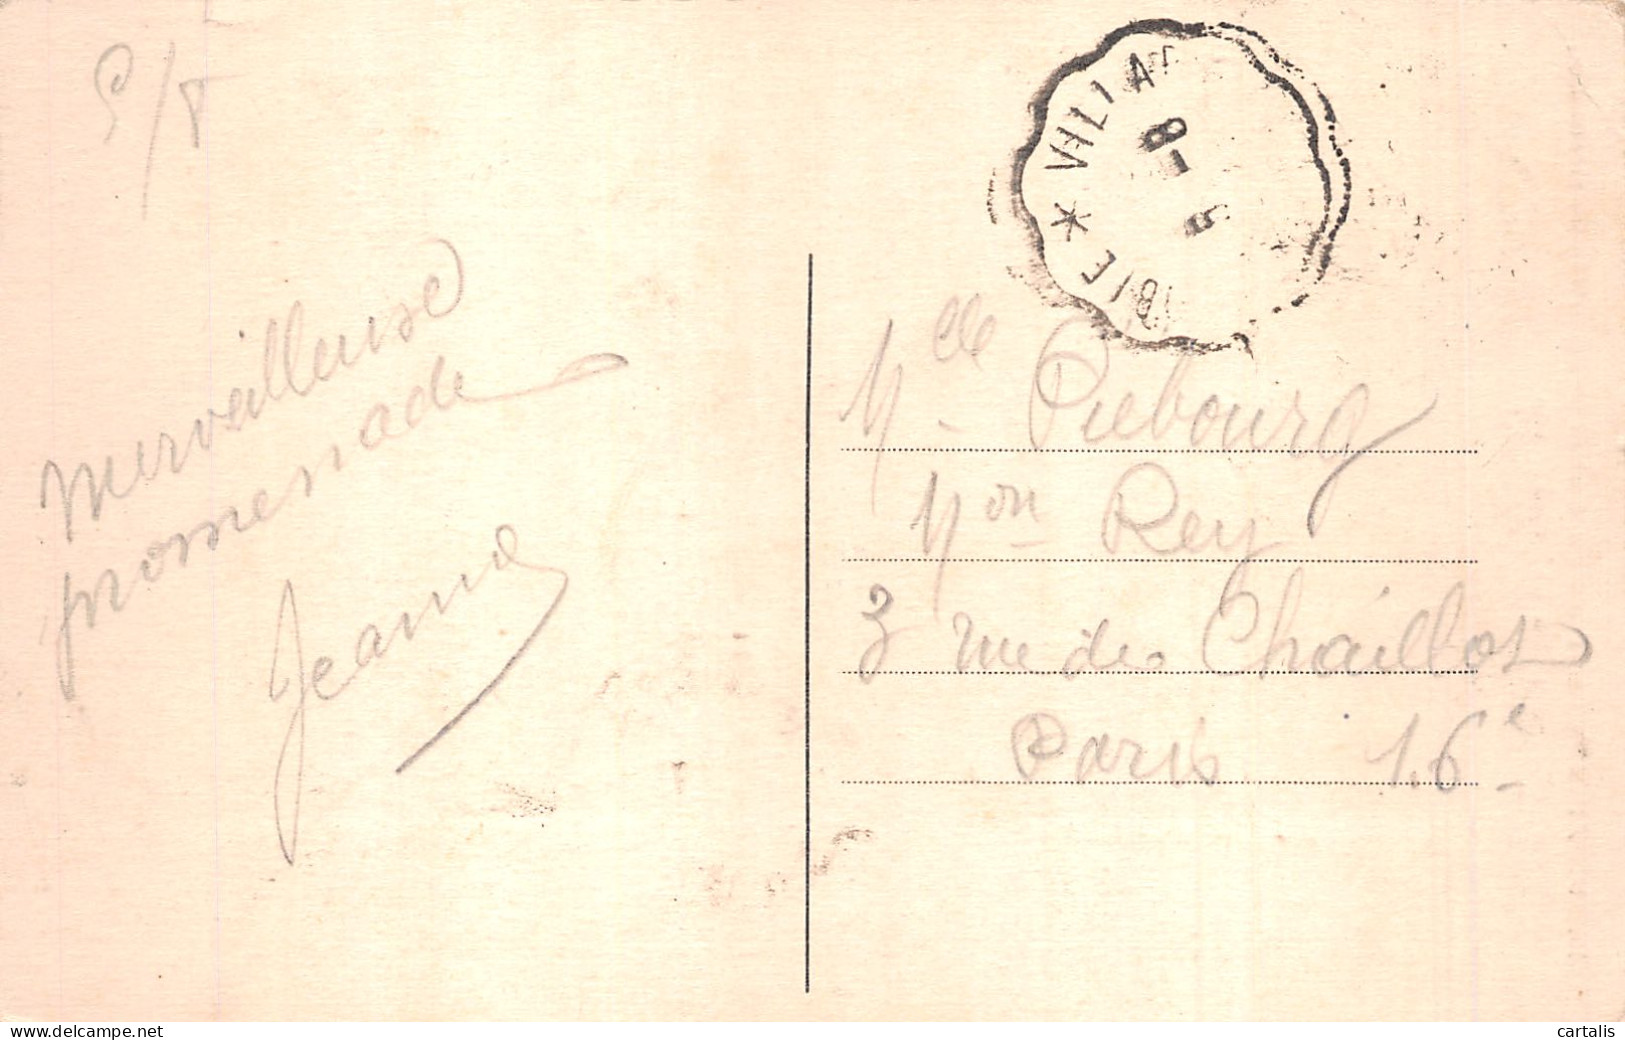 merveilleuse
promenade
Jeanne
VILLA
8-5
BIE *
Mlle Piebourg
Mon Rey
3 rue de Chaillot
Paris 16e
www.delcampe.net
cartalis